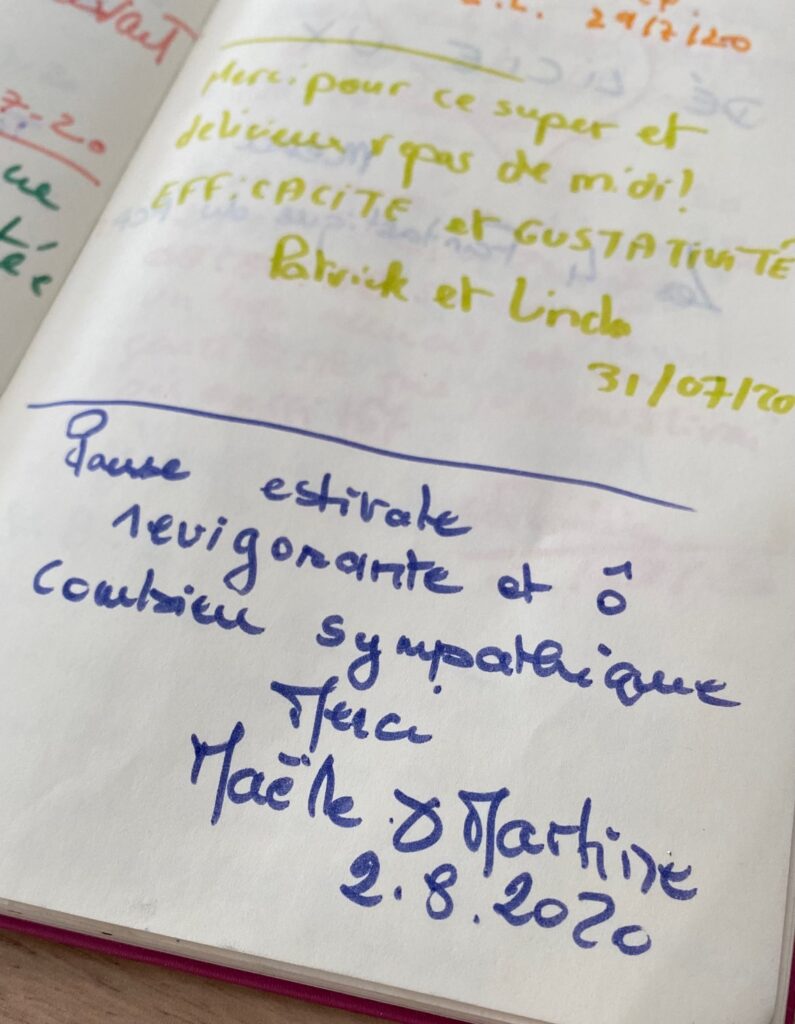 29/7/20
Merci pour ce super et
delicieux repas de midi!
EFFICACITE et GUSTATIVITÉ
Patrick et Linda
31/07/20
Pause estivale
revigorante et ô
combien sympathique
Merci
Maëlle & Martine
2.8.2020
7-20